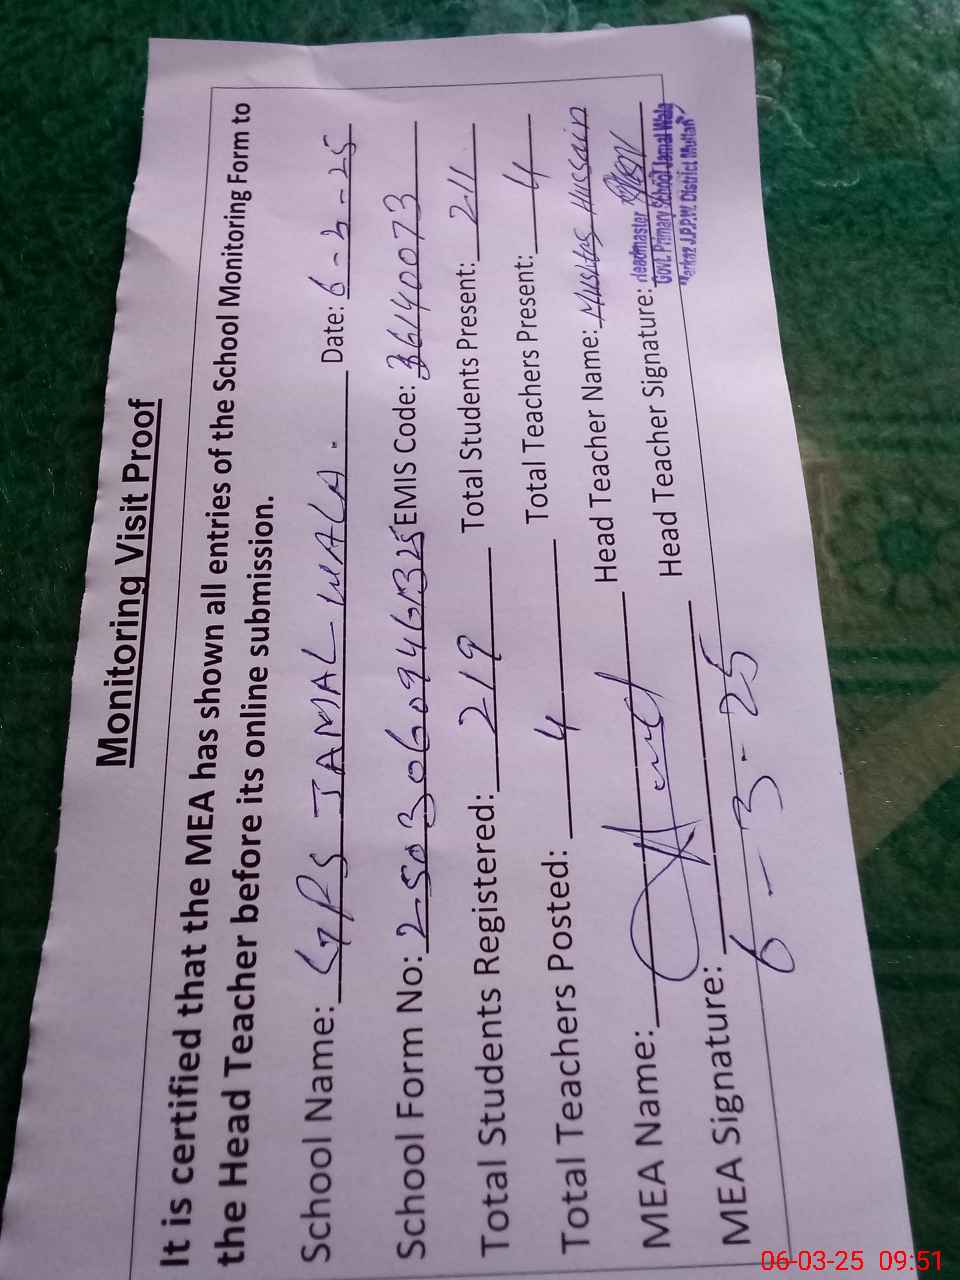 Monitoring Visit Proof
It is certified that the MEA has shown all entries of the School Monitoring Form to
the Head Teacher before its online submission.
School Name: GPS JAMAL WALA. Date: 6-3-25
School Form No: EMIS Code: 36140073
Total Students Registered: 219 Total Students Present: 211
Total Teachers Posted: 4 Total Teachers Present: 4
MEA Name: Head Teacher Name: Hussain
MEA Signature: Head Teacher Signature:
6-3-25
Headmaster
Govt. Primary School Jamal Wala
Markaz J.P.P.W. District Multan
06-03-25 09:51